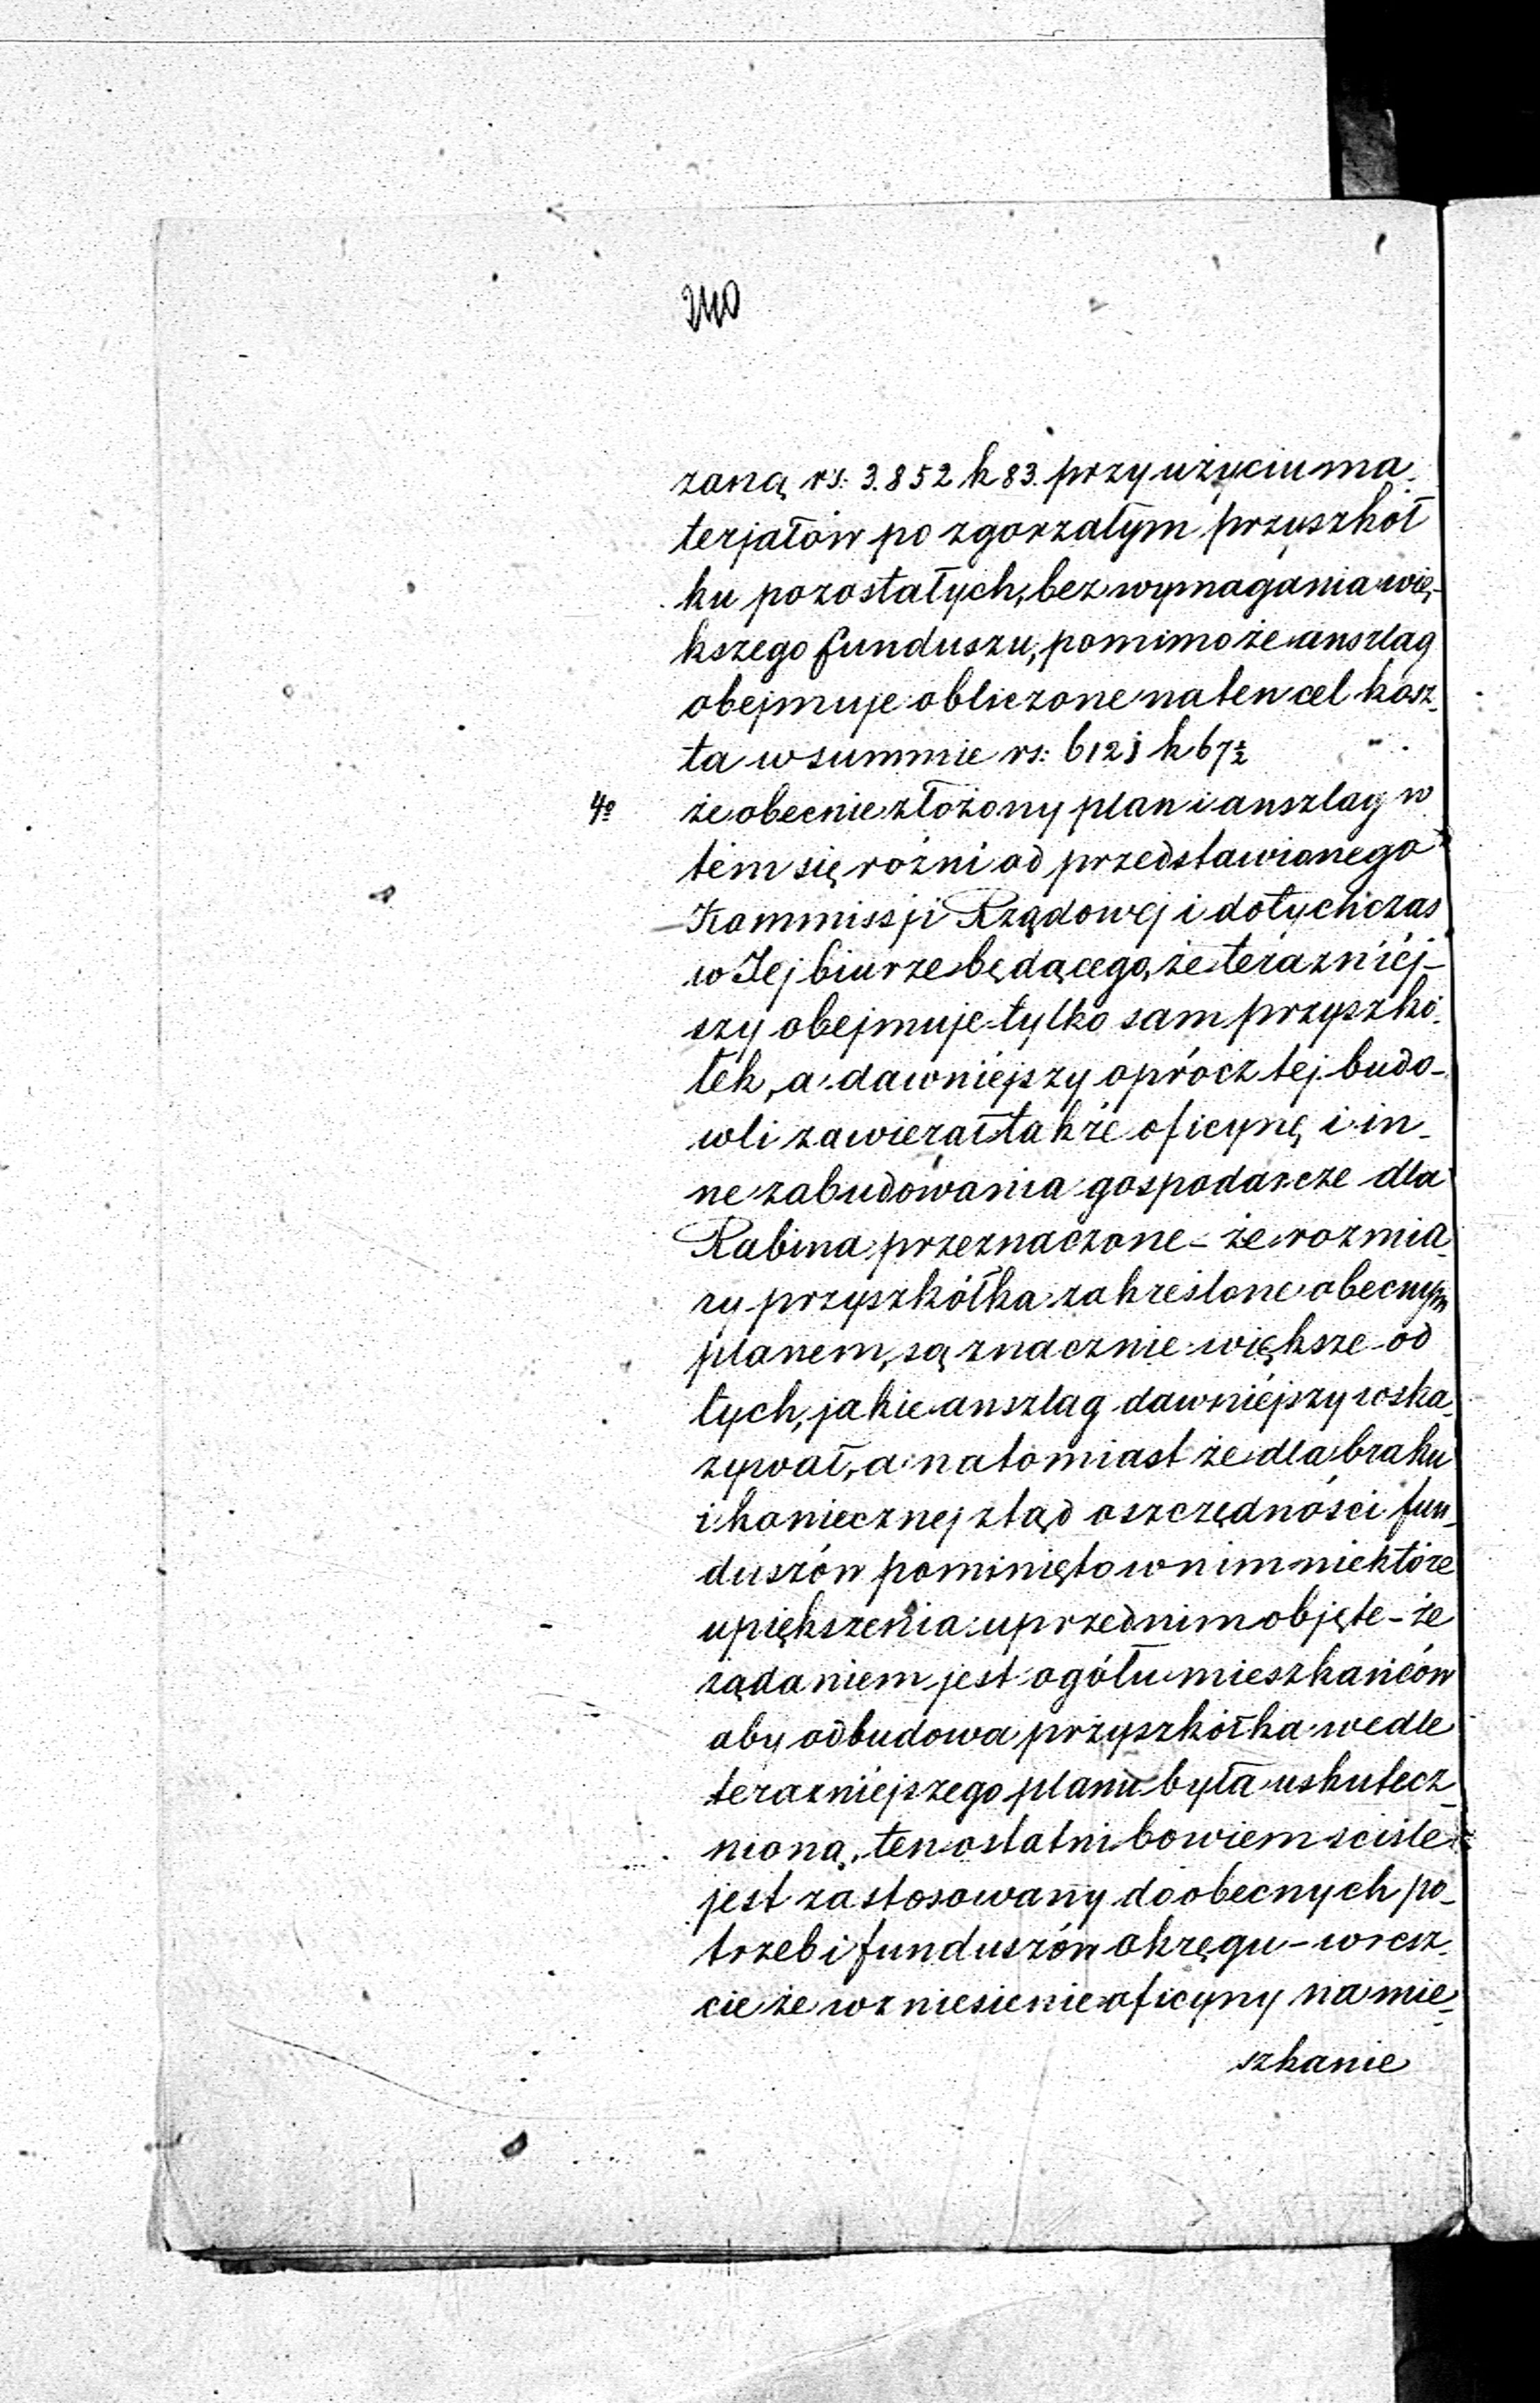 240
zaną rs: 3.852 k 83. przy użyciu ma-
terjałów po zgorzałym przyszkoł
ku pozostałych, bez wymagania wię-
kszego funduszu, pomimo że anszlag
obejmuje obliczone na ten cel kosz-
ta w summie rs: 6123 k 67½
4o że obecnie złożony plan i anszlag w
tém się rożni od przedstawionego
Kommissji Rządowej i dotychczas
w Jej biurze będącego, że teraźniéj-
szy obejmuje tylko sam przyszkó-
łek, a dawniéjszy oprócz tej budo-
wli zawierał także oficynę i in-
ne zabudowania gospodarcze dla
Rabina przeznaczone – że rozmia-
ry przyszkółka zakreślone obecnym
planem, są znacznie większe od
tych, jakie anszlag dawniéjszy wska-
zywał, a natomiast że dla braku
i koniecznej ztąd oszczędności fun-
duszów pominięto w nim niektóre
upiększenia uprzednim objęte – że
żądaniem jest ogółu mieszkańców
aby odbudowa przyszkółka wedle
teraźniejszego planu była uskutecz-
nioną, ten ostatni bowiem sciśle
jest zastosowany do obecnych po-
trzeb i funduszów okręgu – wresz-
cie że wzniesienie oficyny na mie-
szkanie